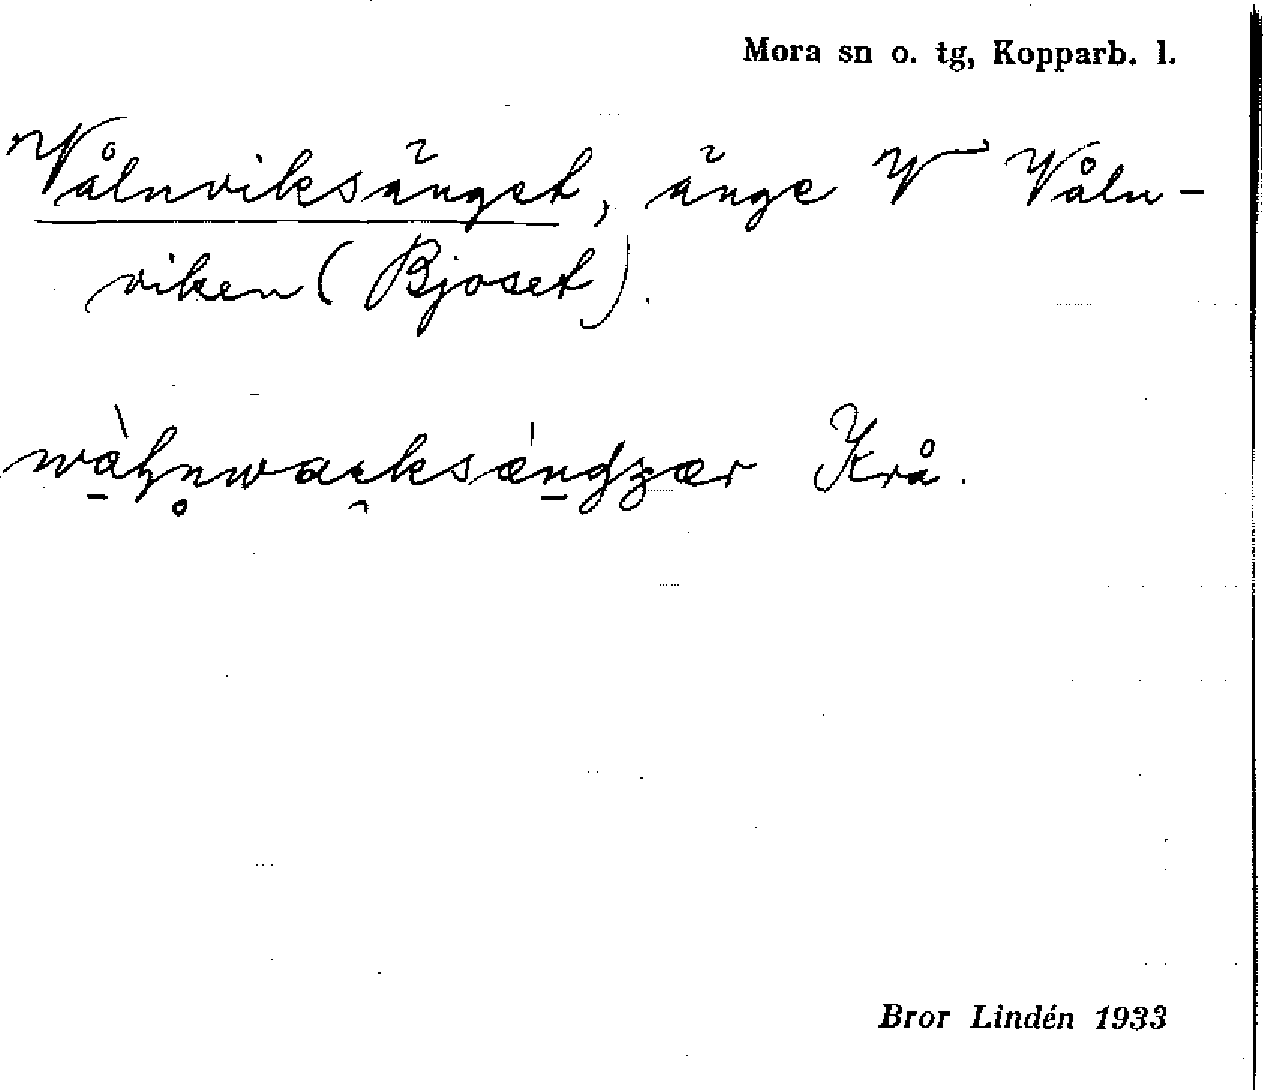 Mora sn o. tg, Kopparb. l.
Vålnviksänget, änge V Våln-
viken (Bjoset).
Krå.
Bror Lindén 1933